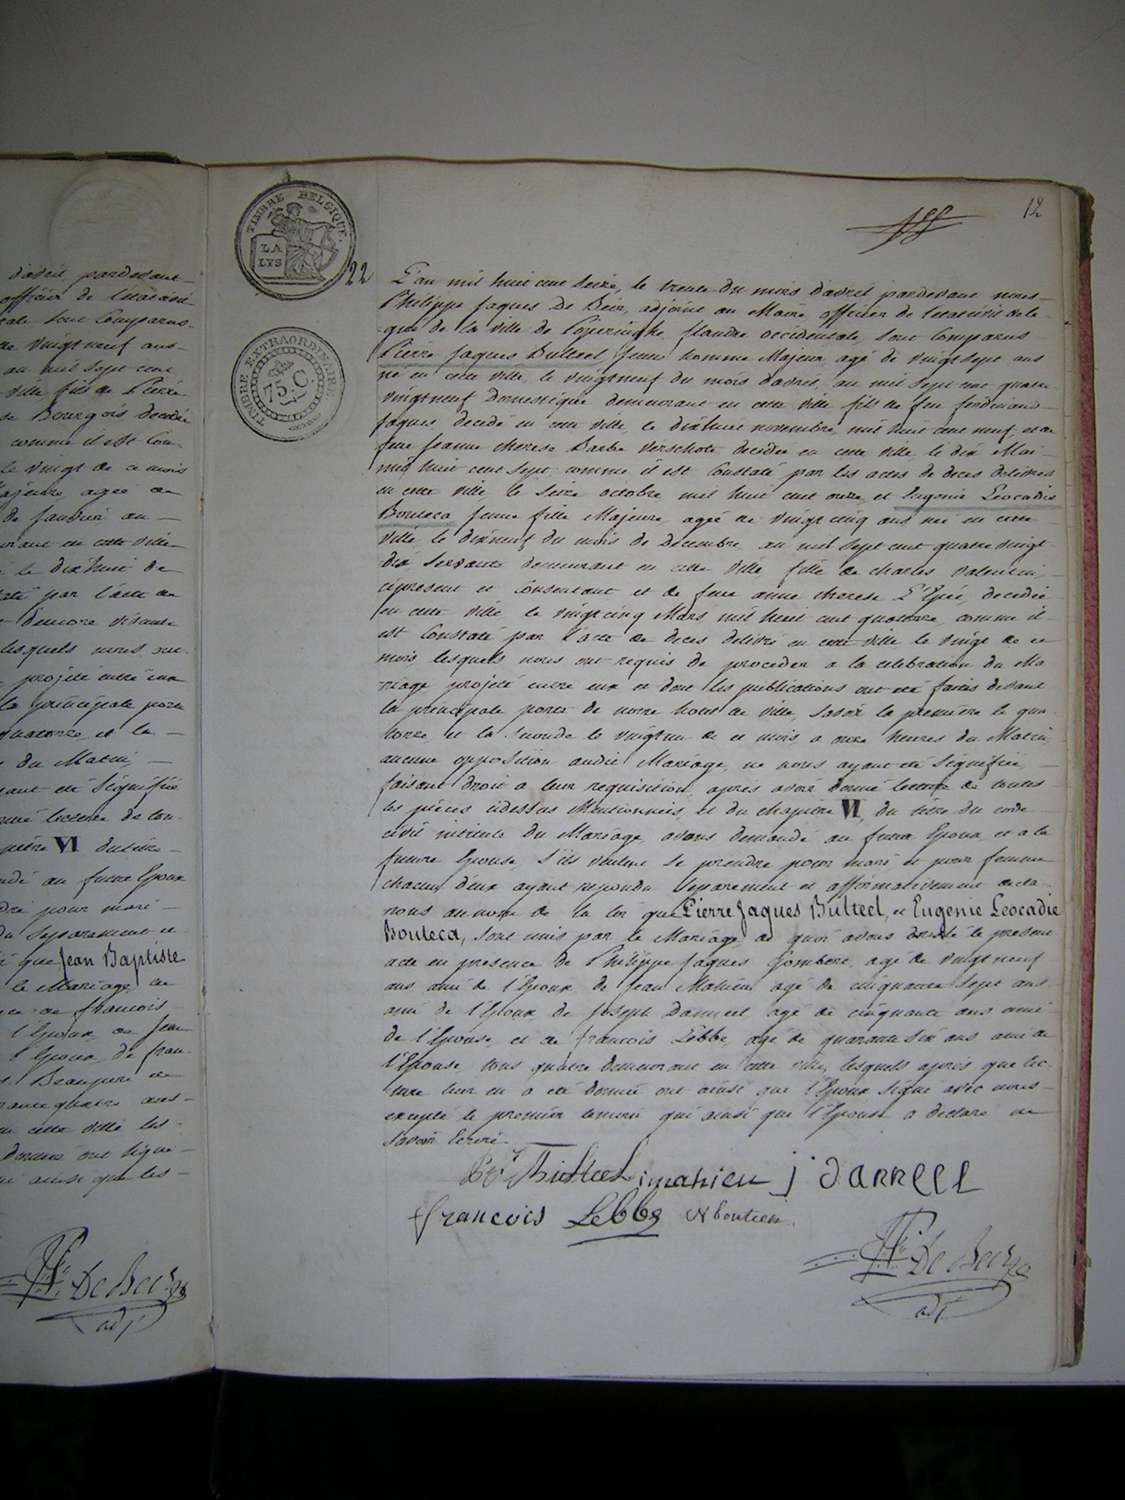 12
TIMBRE BELGIQUE
LA
LYS
TIMBRE EXTRAORDINAIRE
75. C.
22
L'an mil huit cent seize, le trente du mois d'avril pardevant nous
Philippe Jaques De Beir, adjoint au Maire officier de l'etat civil de le
que de la ville de Poperinghe, flandre occidentale sont Comparus
Pierre Jaques Bulteel jeune homme Majeur agé de vingt sept ans
né en cette ville le vingtneuf du mois d'avril, an mil sept cent quatre
vingtneuf domestique demeurant en cette ville fils de feu ferdinand
Jaques decedé en cette ville, le dixhuit novembre, mil huit cent neuf et de
feue Jeanne therese Barbe Verschote decedée en cette ville le dix Mai
mil huit cent sept comme il est Constaté par les actes de deces delivrés
en cette ville, le seize octobre mil huit cent onze, et Eugenie Leocadie
Bouteca jeune fille Majeure, agée de vingtcinq ans née en cette
ville le dixneuf du mois de Decembre an mil sept cent quatre vingt
dix servante demeurant en cette ville fille de charles valentin
cipresent et Consentant et de feue anne therese L'Epée, decedée
en cette ville le vingtcinq Mars mil huit cent quatorze, comme il
est Constaté par l'acte de deces delivré en cette ville le vingt de ce
mois, lesquels nous ont requis de proceder a la celebration du Ma
riage projeté entre eux et dont les publications ont eté faites devant
la principale porte de notre hotel de ville, savoir la premiere le qua
torze, et la seconde le vingtun de ce mois a onze heures du Matin,
aucune opposition audit Mariage, ne nous ayant eté signifiée,
faisant droit a leur requisition, apres avoir donné lecture de toutes
les pieces cidessus Mentionnées, et du chapitre VI, du titre du code
civil intitulé du Mariage, avons demandé au futur Epoux, et a la
future Epouse, s'ils veulent se prendre pour mari et pour femme
chacun d'eux ayant repondu separement et affirmativement decla
rons au nom de la loi que Pierre Jaques Bulteel, et Eugenie Leocadie
Bouteca, sont unis par le Mariage, de quoi avons dressé le present
acte en presence de Philippe Jaques Gombert, agé de vingtneuf
ans ami de l'Epoux de Jean Mahieu agé de cinquante sept ans
ami de l'Epoux de Joseph Danneel agé de cinquante ans ami
de l'Epouse, et de francois Lebbe, agé de quarante six ans ami de
l'Epouse, tous quatre demeurant en cette ville, lesquels apres que lec
ture leur en a eté donnée ont ainsi que l'Epoux signé avec nous
excepté le premier temoin qui ainsi que l'Epouse a declaré ne
savoir Ecrire.
Bulteel j mahieu j DANNEEL
francois Lebbe
De Beir
adjt
d'avril pardevant
officier de l'etat civil
sont Comparus
vingtneuf ans
an mil sept cent
ville fils de Pierre
Bourgois decedée
comme il est Con
le vingt de ce mois
Majeure, agée de
de janvier an
en cette ville
le dixhuit de
par l'acte de
lesquels nous re
projeté entre eux
la principale porte
quatorze, et la
du Matin,
ayant eté signifiée
lecture de tou
VI du titre
au futur Epoux
pour mari
separement et
que Jean Baptiste
le Mariage de
de francois
l'Epoux de Jean
l'Epoux, de fran
Beaupere de
quatre ans
en cette ville les
donnée ont signé
ainsi que les
De Beir
adjt